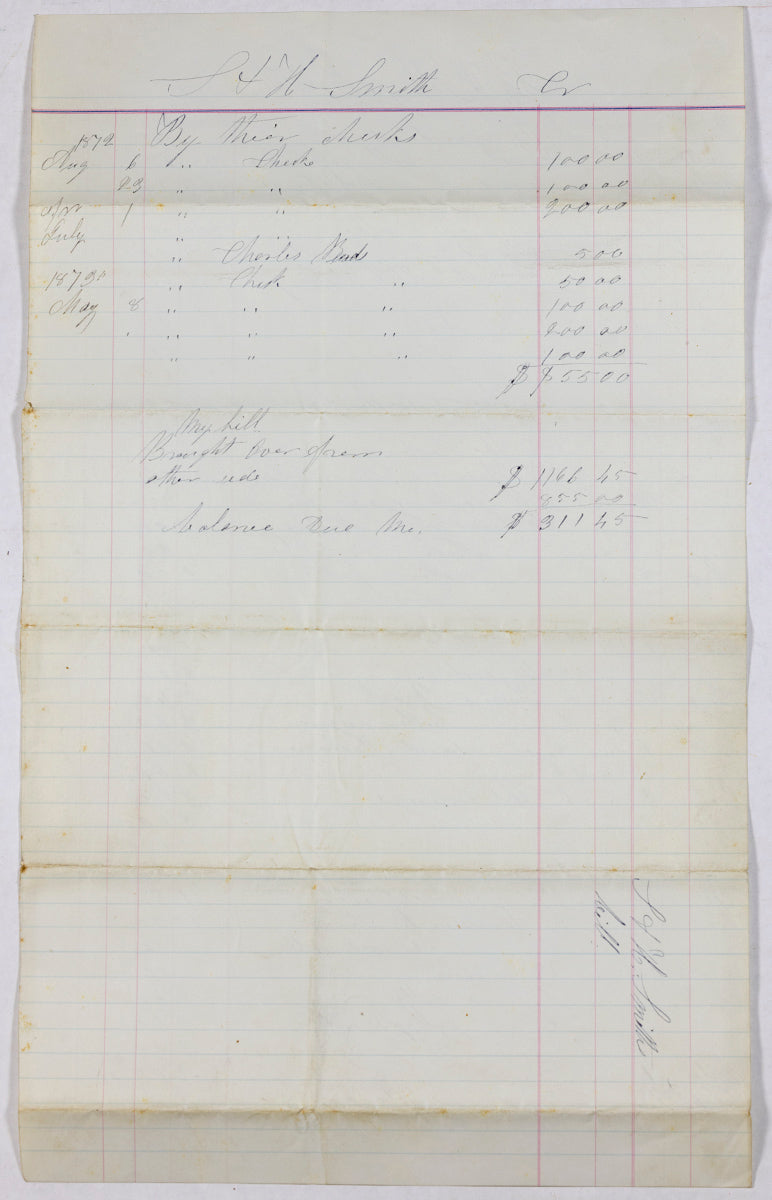 S & W Smith Cr
1872 By their checks
Aug 6 " Checks 100 00
23 " " 100 00
1 " " 200 00
July " "
" Charles 5 00
1873 " Check " 50 00
May 8 " " " 100 00
" " " " 200 00
" " " 100 00
$ 855 00
My bill
Brought over from
other side $ 1166 45
855 00
balance Due Me. $ 311 45
S & W Smith
bill